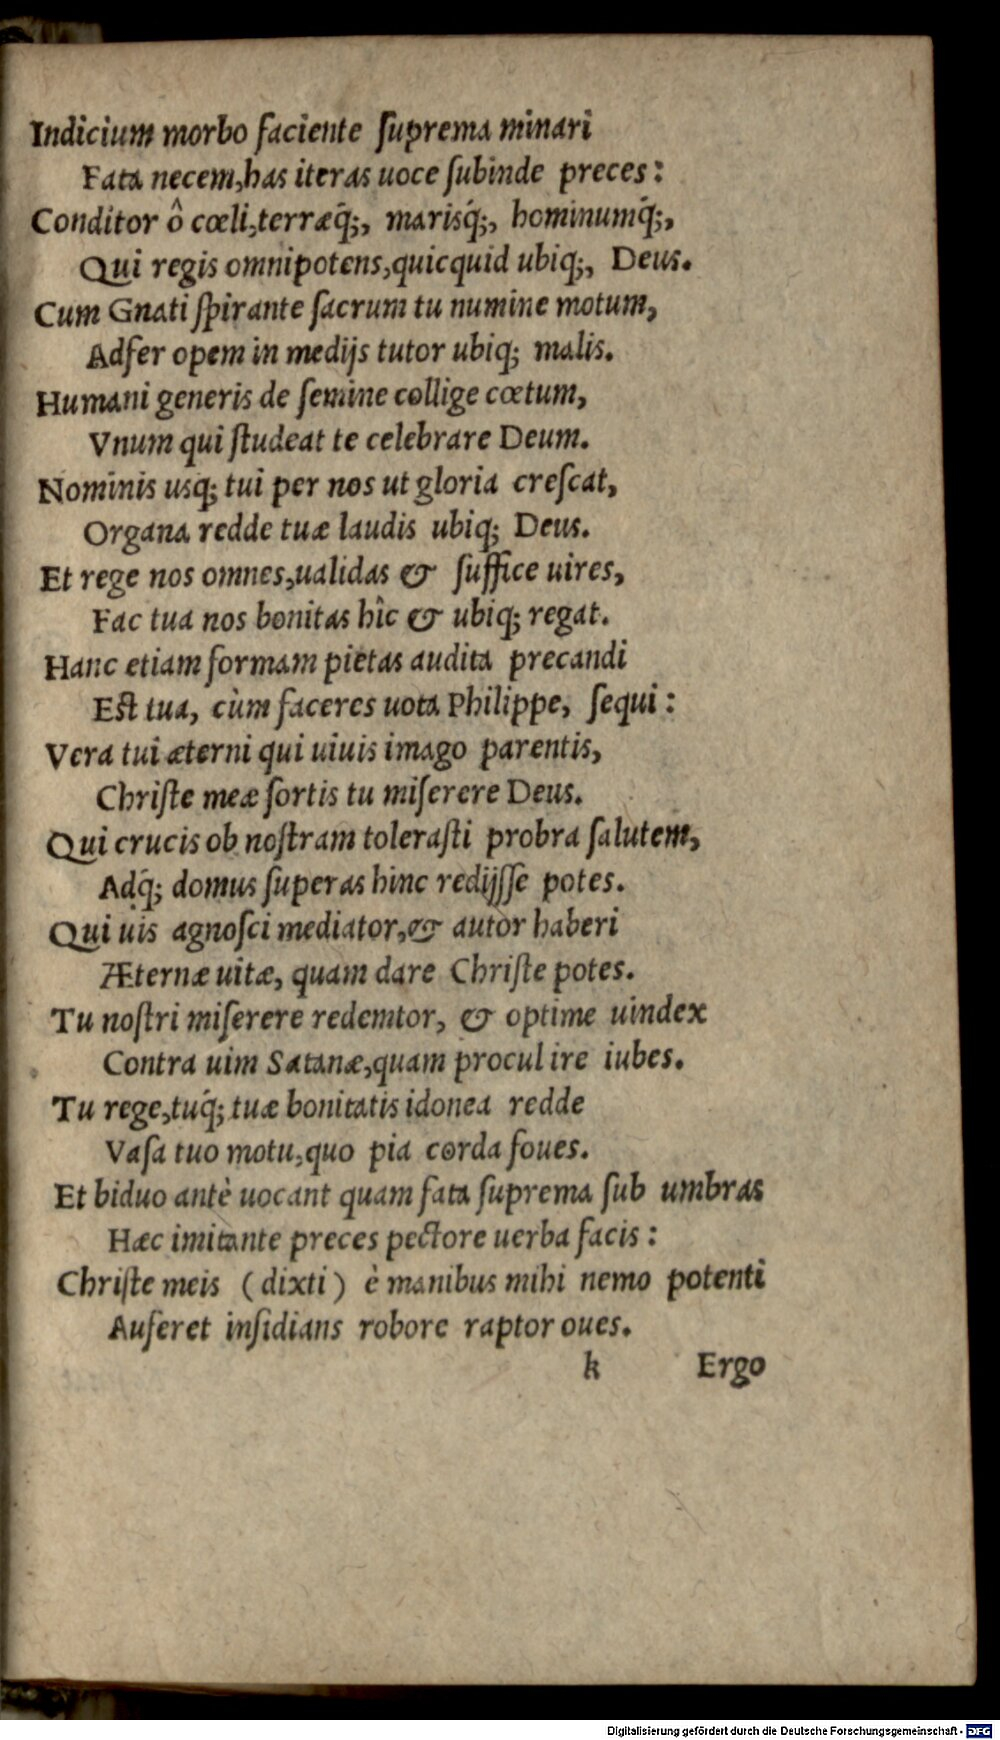 Indicium morbo faciente ſuprema minari
Fata necem,has iteras uoce ſubinde preces:
Conditor ô cœli,terræq́;, marisq́;, hominumq́;,
Qui regis omnipotens,quicquid ubiq;, Deus.
Cum Gnati ſpirante ſacrum tu numine motum,
Adfer opem in medijs tutor ubiq; malis.
Humani generis de ſemine collige cœtum,
Vnum qui ſtudeat te celebrare Deum.
Nominis usq; tui per nos ut gloria creſcat,
Organa redde tuæ laudis ubiq; Deus.
Et rege nos omnes,ualidas & ſuffice uires,
Fac tua nos bonitas hîc & ubiq; regat.
Hanc etiam formam pietas audita precandi
Eſt tua, cùm faceres uota Philippe, ſequi:
Vera tui æterni qui uiuis imago parentis,
Chriſte meæ ſortis tu miſerere Deus.
Qui crucis ob noſtram toleraſti probra ſalutem,
Adq́; domus ſuperas hinc redijſſe potes.
Qui uis agnoſci mediator,& autor haberi
Æternæ uitæ, quam dare Chriſte potes.
Tu noſtri miſerere redemtor, & optime uindex
Contra uim Satanæ,quam procul ire iubes.
Tu rege,tuq́; tuæ bonitatis idonea redde
Vaſa tuo motu,quo pia corda foues.
Et biduo antè uocant quam fata ſuprema ſub umbras
Hæc imitante preces pectore uerba facis:
Chriſte meis (dixti) è manibus mihi nemo potenti
Auferet inſidians robore raptor oues.
k Ergo
Digitalisierung gefördert durch die Deutsche Forschungsgemeinschaft - DFG